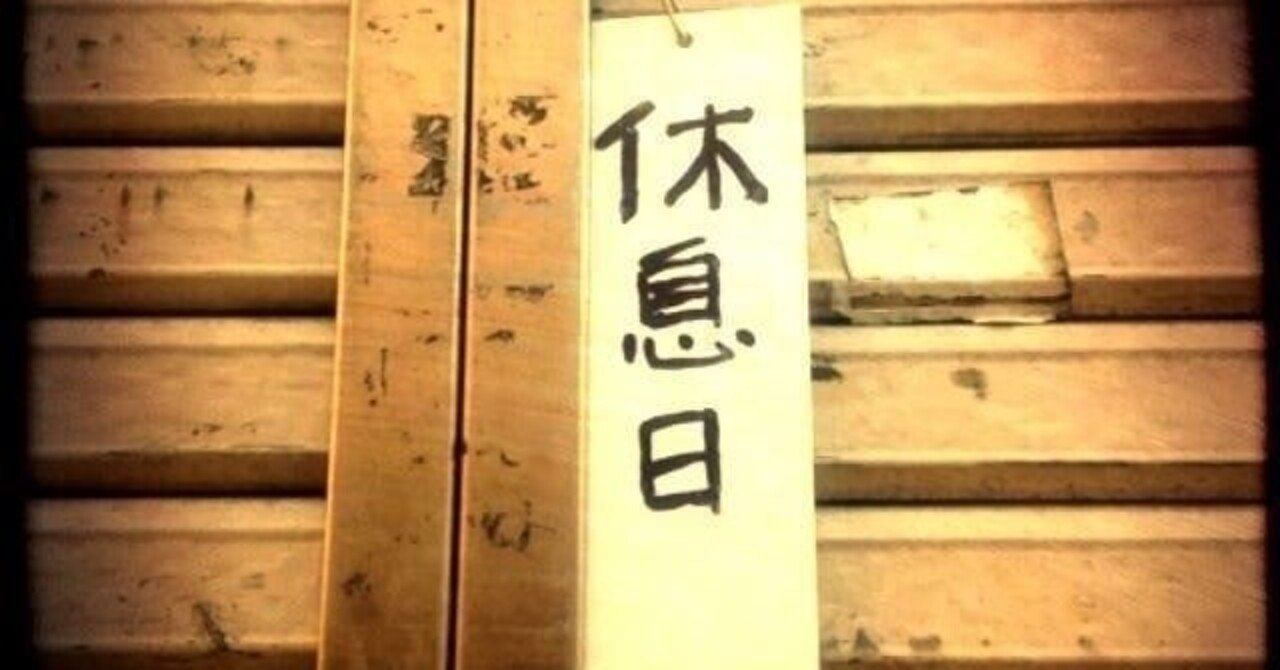 休息日